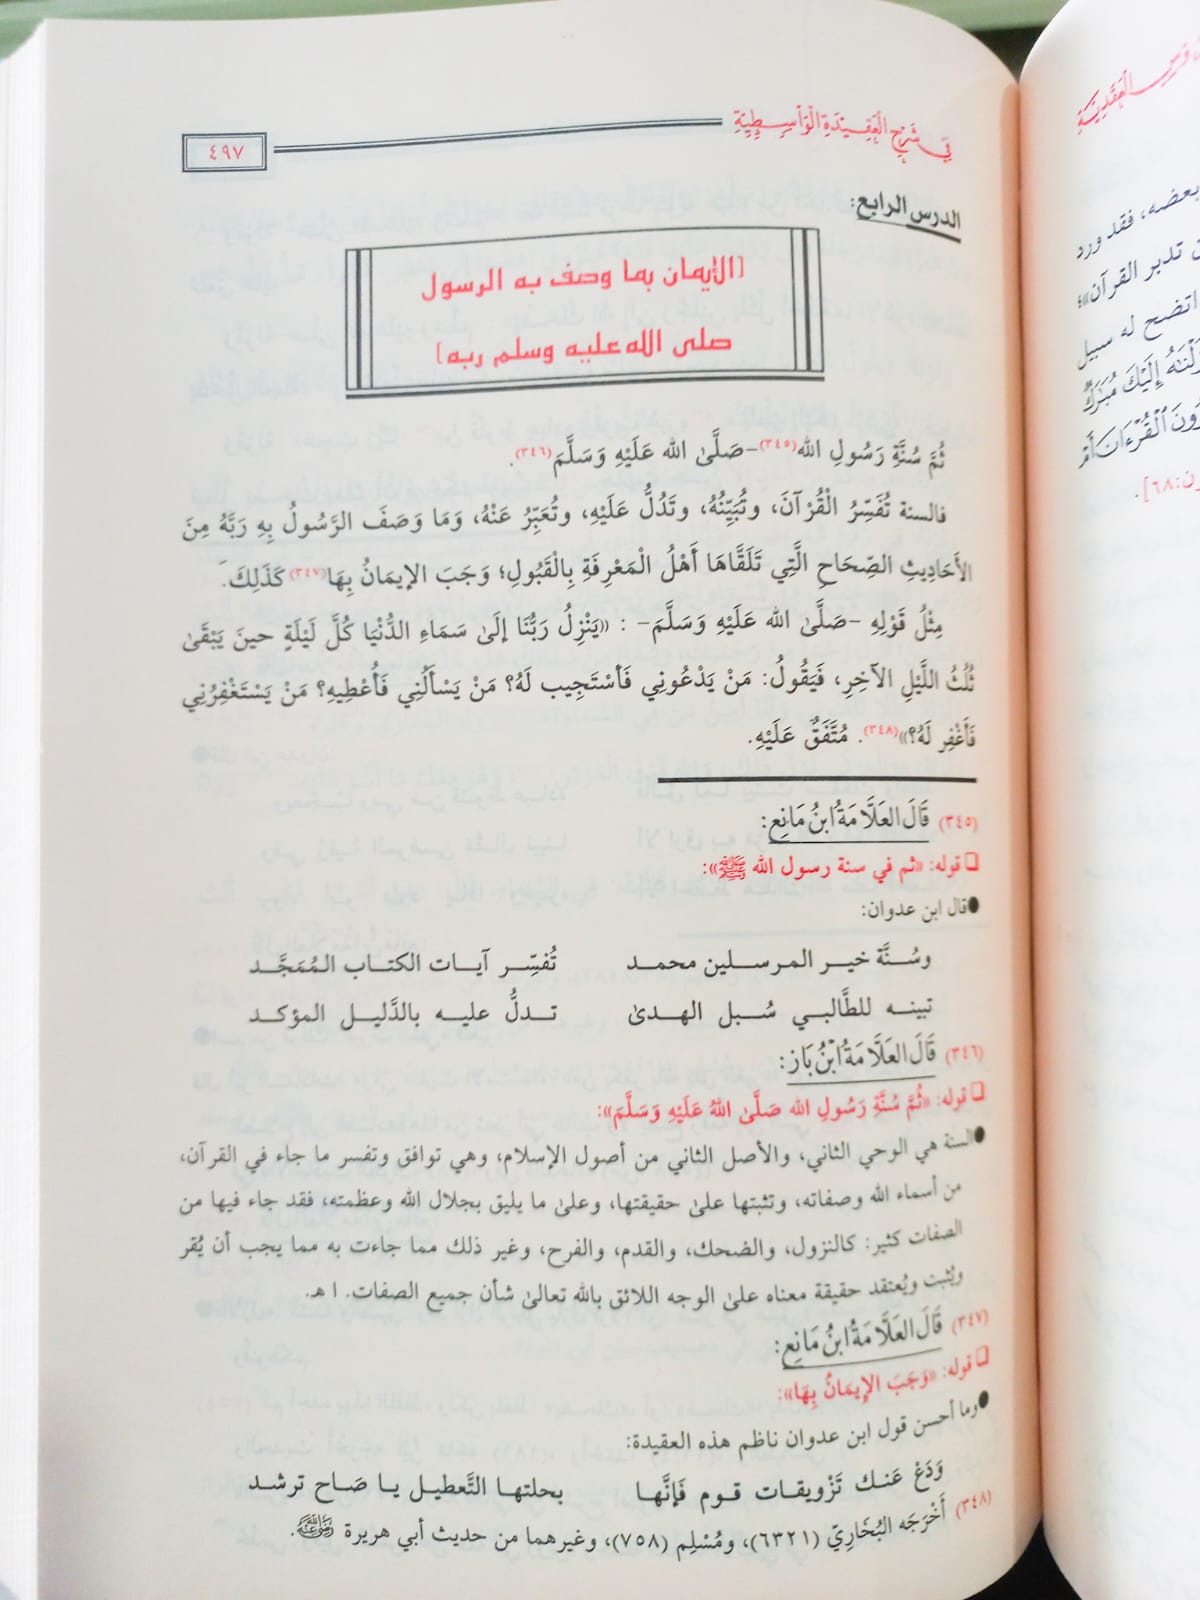 في شرح العقيدة الواسطية
٤٩٧
الدرس الرابع:
[الإيمان بما وصف به الرسول
صلى الله عليه وسلم ربه]
ثُمَّ سُنَّةِ رَسُولِ الله(٣٤٥)-صَلَّىٰ الله عَلَيْهِ وَسَلَّمَ(٣٤٦).
فالسنة تُفَسِّرُ الْقُرْآنَ، وتُبَيِّنُهُ، وتَدُلُّ عَلَيْهِ، وتُعَبِّرُ عَنْهُ، وَمَا وَصَفَ الرَّسُولُ بِهِ رَبَّهُ مِنَ
الأَحَادِيثِ الصِّحَاحِ الَّتِي تَلَقَّاهَا أَهْلُ الْمَعْرِفَةِ بِالْقَبُولِ؛ وَجَبَ الإيمَانُ بِهَا(٣٤٧) كَذَلِكَ.
مِثْلُ قَوْلِهِ -صَلَّىٰ الله عَلَيْهِ وَسَلَّمَ- : «يَنْزِلُ رَبُّنَا إلَىٰ سَمَاءِ الدُّنْيَا كُلَّ لَيْلَةٍ حينَ يَبْقَىٰ
ثُلُثُ اللَّيْلِ الآخِرِ، فَيَقُولُ: مَنْ يَدْعُونِي فَأَسْتَجِيب لَهُ؟ مَنْ يَسْأَلُنِي فَأُعْطِيهِ؟ مَنْ يَسْتَغْفِرُنِي
فَأَغْفِر لَهُ؟»(٣٤٨). مُتَّفَقٌ عَلَيْهِ.
(٣٤٥) قَالَ العَلَّامَةُ ابنُ مَانِعٍ:
❑ قوله: «ثم في سنة رسول الله ﷺ»:
●قال ابن عدوان:
وسُـنَّة خيـر المرسـلين محمـد تُفسِّـر آيـات الكتـاب المُمَجَّـد
تبينـه للطَّالبـي سُـبل الهـدىٰ تـدلُّ عليـه بالدَّليـل المؤكـد
(٣٤٦) قَالَ العَلَّامَةُ ابْنُ بَاز:
❑ قوله: «ثُمَّ سُنَّةِ رَسُولِ الله صَلَّىٰ اللهُ عَلَيْهِ وَسَلَّمَ»:
●السنة هي الوحي الثاني، والأصل الثاني من أصول الإسلام، وهي توافق وتفسر ما جاء في القرآن،
من أسماء الله وصفاته، وتثبتها علىٰ حقيقتها، وعلىٰ ما يليق بجلال الله وعظمته، فقد جاء فيها من
الصفات كثير: كالنزول، والضحك، والقدم، والفرح، وغير ذلك مما جاءت به مما يجب أن يُقر
ويُثبت ويُعتقد حقيقة معناه علىٰ الوجه اللائق بالله تعالىٰ شأن جميع الصفات. ا هـ.
(٣٤٧) قَالَ العَلَّامَةُ ابنُ مَانِعٍ:
❑ قوله: «وَجَبَ الإيمَانُ بِهَا»:
●وما أحسن قول ابن عدوان ناظم هذه العقيدة:
وَدَعْ عَنـك تَزْويقـات قـوم فَإنَّهـا بحلتهـا التَّعطيـل يـا صَـاح ترشـد
(٣٤٨) أَخْرَجَه البُخَارِيّ (٦٣٢١)، ومُسْلِم (٧٥٨)، وغيرهما من حديث أبي هريرة رضي الله عنه.
بعضه، فقد ورد
تدبر القرآن»؛
اتضح له سبيل
إِلَيْكَ مُبَٰرَكٌ
ٱلْقُرْءَانَ أَمْ
:٦٨].